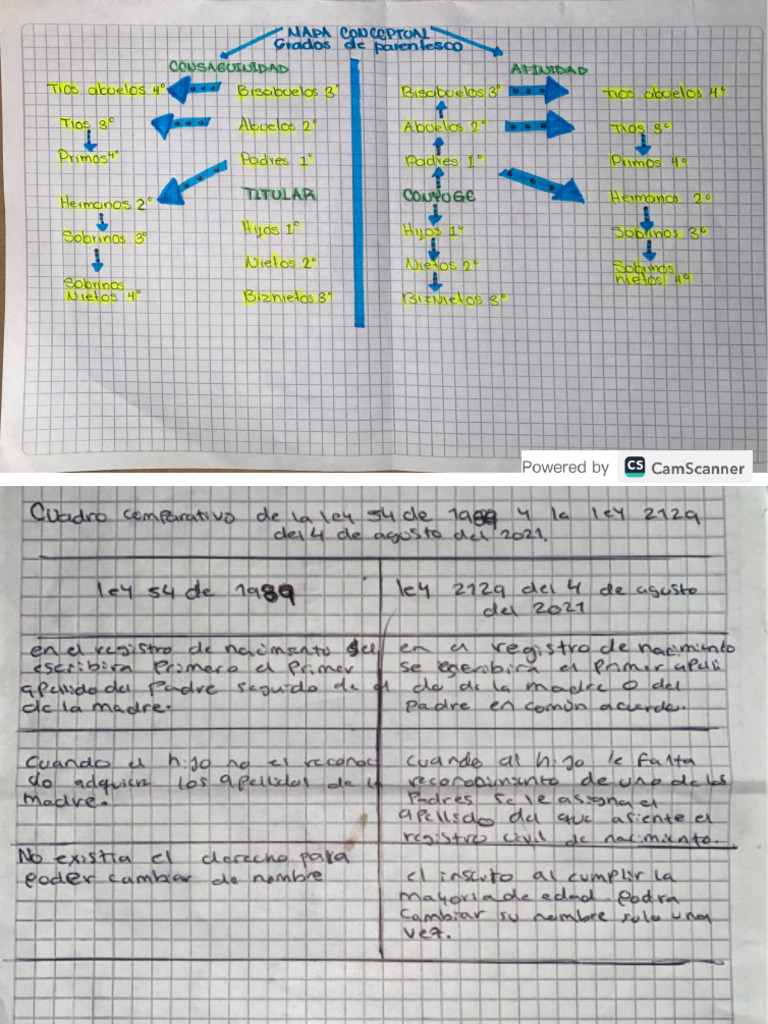 MAPA CONCEPTUAL
Grados de parentesco
CONSAGUINIDAD
AFINIDAD
Tios abuelos 4°
Bisabuelos 3°
Bisabuelos 3°
Tios abuelos 4°
Tios 3°
Abuelos 2°
Abuelos 2°
Tios 3°
Primos 4°
Padres 1°
Padres 1°
Primos 4°
Hermanos 2°
TITULAR
CONYOGE
Hermanos 2°
Sobrinos 3°
Hijos 1°
Hijos 1°
Sobrinos 3°
Sobrinos
Nietos 4°
Nietos 2°
Nietos 2°
Sobrinos
nietos 4°
Biznietos 3°
BizNietos 3°
Powered by CS CamScanner
Cuadro comparativo de la ley 54 de 1989 y la ley 2129
del 4 de agosto del 2021.
ley 54 de 1989
ley 2129 del 4 de agosto
del 2021
en el registro de nacimiento se
escribira primero el primer
apellido del Padre seguido de el
de la madre.
en el registro de nacimiento
se escribira el primer apelli
do de la madre o del
padre en común acuerdo.
Cuando el hijo no el reconoci
do adquiere los apellidos de la
madre.
cuando al hijo le falta
reconocimiento de uno de los
Padres se le assigna el
apellido del que asiente el
registro civil de nacimiento.
No existia el derecho para
poder cambiar de nombre
el inscrito al cumplir la
mayoria de edad podra
cambiar su nombre solo una
vez.